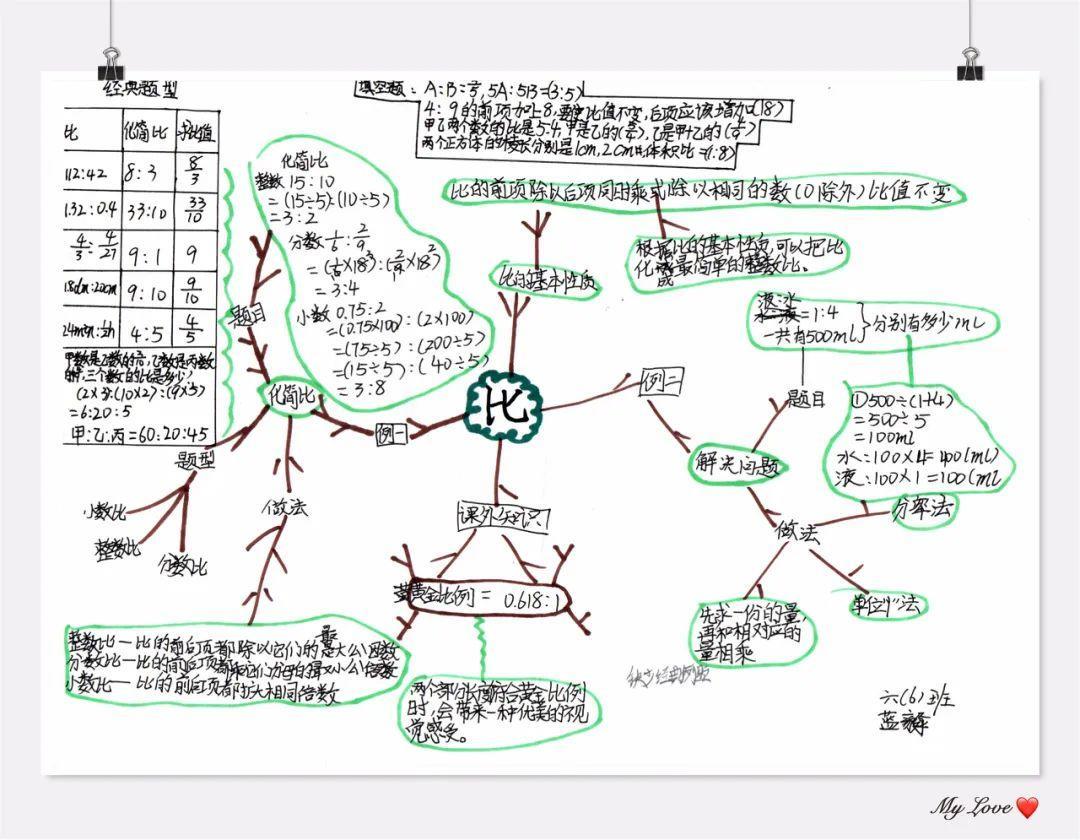 经典题型
比 化简比 求比值
112:42 8:3 8/3
1.32:0.4 33:10 33/10
4/3:4/27 9:1 9
18dm:20dm 9:10 9/10
24min:h 4:5 4/5
三个数的比是多少
=6:20:5
甲:乙:丙=60:20:45
填空题:A:B=,5A:5B=(3:5)
4:9的前项加上8,要使比值不变,后项应该增加(18)
甲乙两个数的比是5:4,甲是乙的(),乙是甲的()
两个正方体的棱长分别是1cm,2cm体积比=(1:8)
化简比
整数15:10
=(15÷5):(10÷5)
=3:2
分数1/6:2/9
=(1/6×18):(2/9×18)
=3:4
小数0.75:2
=(0.75×100):(2×100)
=(75÷5):(200÷5)
=(15÷5):(40÷5)
=3:8
比的前项除以后项同时乘或除以相同的数(0除外)比值不变
根据比的基本性质,可以把比
化成最简单的整数比。
比的基本性质
液:水
=1:4
一共有500ml
分别有多少ml
题目
①500÷(1+4)
=500÷5
=100ml
水:100×4=400(ml)
液:100×1=100(ml
分率法
例二
解决问题
做法
单位“1”法
先求一份的量,
再和相对应的
量相乘
比
例一
化简比
题目
题型
小数比
整数比
分数比
做法
整数比—比的前后项都除以它们的最大公因数
分数比—比的前后项都乘它们分母的最小公倍数
小数比—比的前后项都扩大相同倍数
课外知识
黄金比例=0.618:1
两个部分长度符合黄金比例
时,会带来一种优美的视
觉感受。
六(6)班
蓝
My Love ❤️